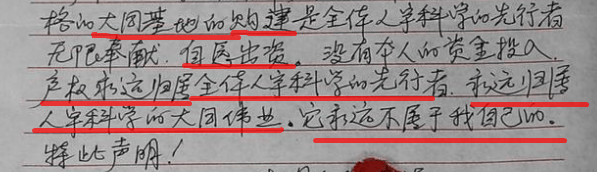 格的大同基地的购建是全体人宇科学的先行者
无限奉献、自愿出资。没有本人的资金投入，
产权永远归属全体人宇科学的先行者，永远归属
人宇科学的大同伟业。它永远不属于我自己的。
特此声明！